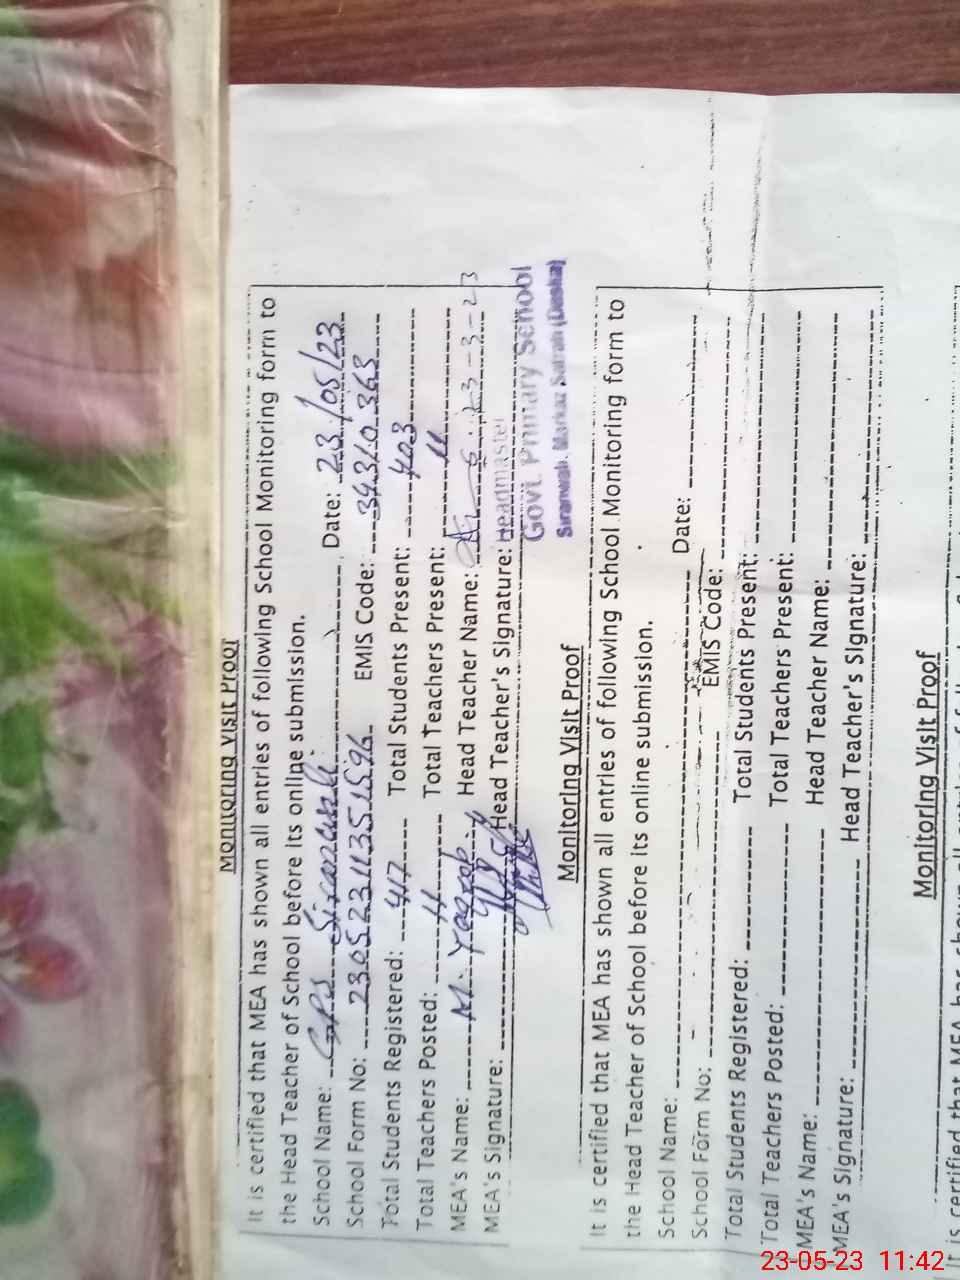 Monitoring Visit Proof
It is certified that MEA has shown all entries of following School Monitoring form to
the Head Teacher of School before its online submission.
School Name: GPS Siranwali Date: 23/05/23
School Form No: 23052311351596 EMIS Code: 34310363
Total Students Registered: 417 Total Students Present: 403
Total Teachers Posted: 11 Total Teachers Present: 11
MEA's Name: M. Yaqoob Head Teacher Name:
MEA's Signature: Head Teacher's Signature: Headmaster
Govt. Primary School
Siranwali. Markaz Satrah (Daska)
Monitoring Visit Proof
It is certified that MEA has shown all entries of following School Monitoring form to
the Head Teacher of School before its online submission.
School Name: Date:
School Form No: EMIS Code:
Total Students Registered: Total Students Present:
Total Teachers Posted: Total Teachers Present:
MEA's Name: Head Teacher Name:
MEA's Signature: Head Teacher's Signature:
Monitoring Visit Proof
It is certified that MEA has shown all entries of
23-05-23 11:42